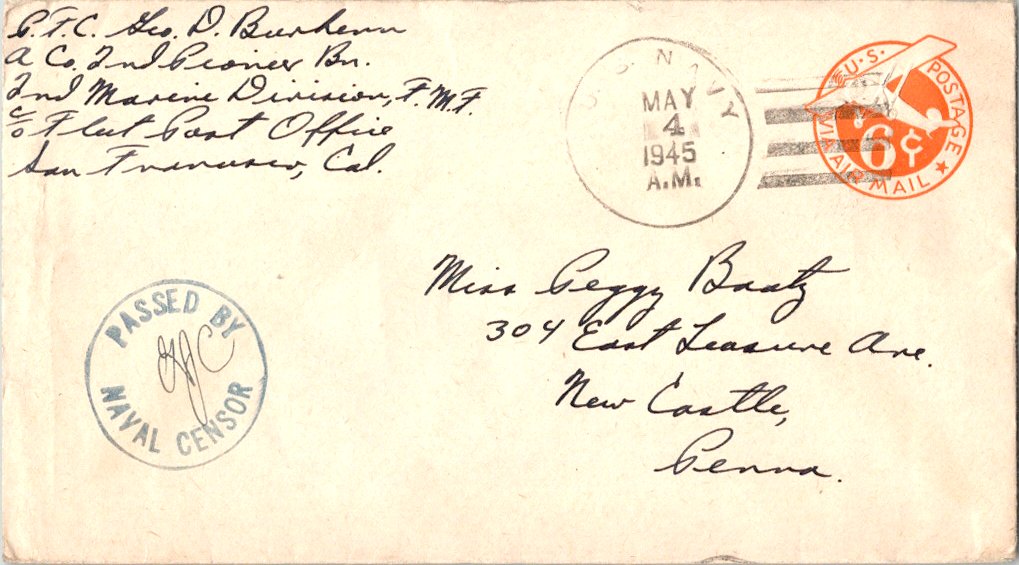 P.F.C. Geo. D. Burhenn
A Co. 2nd Pioneer Bn.
2nd Marine Division, F.M.F.
c/o Fleet Post Office
San Francisco, Cal.
U.S. NAVY
MAY
4
1945
A.M.
U.S. POSTAGE
6¢
VIA AIR MAIL
PASSED BY
NAVAL CENSOR
Miss Peggy Baatz
304 East Leasure Ave.
New Castle,
Penna.